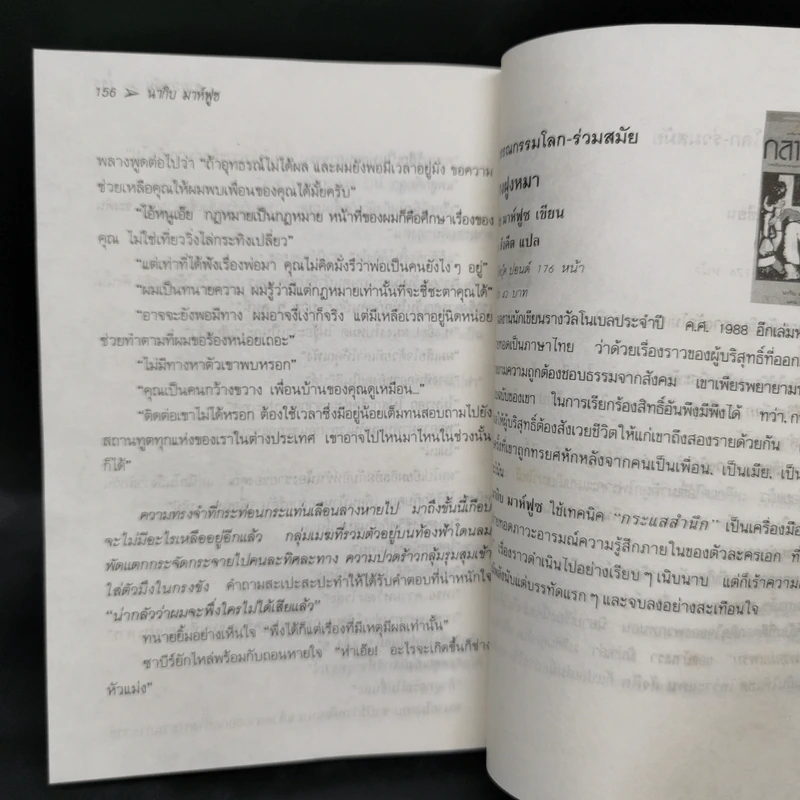 156 ➢ นากิบ มาห์ฟูซ
พลางพูดต่อไปว่า “ถ้าอุทธรณ์ไม่ได้ผล และผมยังพอมีเวลาอยู่มั่ง ขอความ
ช่วยเหลือคุณให้ผมพบเพื่อนของคุณได้มั้ยครับ”
“ไอ้หนูเอ๊ย กฎหมายเป็นกฎหมาย หน้าที่ของผมก็คือศึกษาเรื่องของ
คุณ ไม่ใช่เที่ยววิ่งไล่กระทิงเปลี่ยว”
“แต่เท่าที่ได้ฟังเรื่องพ่อมา คุณไม่คิดมั่งรึว่าพ่อเป็นคนยังไงๆ อยู่”
“ผมเป็นทนายความ ผมรู้ว่ามีแต่กฎหมายเท่านั้นที่จะชี้ชะตาคุณได้”
“อาจจะยังพอมีทาง ผมอาจงี่เง่าก็จริง แต่มีเหลือเวลาอยู่นิดหน่อย
ช่วยทำตามที่ผมขอร้องหน่อยเถอะ”
“ไม่มีทางหาตัวเขาพบหรอก”
“คุณเป็นคนกว้างขวาง เพื่อนบ้านของคุณดูเหมือน...”
“ติดต่อเขาไม่ได้หรอก ต้องใช้เวลาซึ่งมีอยู่น้อยเต็มทนสอบถามไปยัง
สถานทูตทุกแห่งของเราในต่างประเทศ เขาอาจไปไหนมาไหนในช่วงนั้น
ก็ได้”
ความทรงจำที่กระท่อนกระแท่นเลือนลางหายไป มาถึงขั้นนี้เกือบ
จะไม่มีอะไรเหลืออยู่อีกแล้ว กลุ่มเมฆที่รวมตัวอยู่บนท้องฟ้าโดนลม
พัดแตกกระจัดกระจายไปคนละทิศละทาง ความปวดร้าวกลุ้มรุมสุมเข้า
ใส่ตัวมึงในกรงขัง คำถามสะเปะสะปะทำให้ได้รับคำตอบที่น่าหนักใจ
“น่ากลัวว่าผมจะพึ่งใครไม่ได้เสียแล้ว”
ทนายยิ้มอย่างเห็นใจ “พึ่งได้ก็แต่เรื่องที่มีเหตุมีผลเท่านั้น”
ซาบีร์ยักไหล่พร้อมกับถอนหายใจ “ห่าเอ๊ย! อะไรจะเกิดขึ้นก็ช่าง
หัวแม่ง”
รรณกรรมโลก-ร่วมสมัย
ฝูงหมา
มาห์ฟูซ เขียน
แปล
ปอนด์ 176 หน้า
42 บาท
งานนักเขียนรางวัลโนเบลประจำปี ค.ศ. 1988 อีกเล่ม
ทอดเป็นภาษาไทย ว่าด้วยเรื่องราวของผู้บริสุทธิ์ที่ออก
ความถูกต้องชอบธรรมจากสังคม เขาเพียรพยายาม
ของเขา ในการเรียกร้องสิทธิ์อันพึงมีพึงได้ ทว่า
ให้ผู้บริสุทธิ์ต้องสังเวยชีวิตให้แก่เขาถึงสองรายด้วยกัน
ที่เขาถูกทรยศหักหลังจากคนเป็นเพื่อน, เป็นเมีย, เป็น
มาห์ฟูซ ใช้เทคนิค “กระแสสำนึก” เป็นเครื่องมือ
ทอดภาวะอารมณ์ความรู้สึกภายในของตัวละครเอก ที่
เรื่องราวดำเนินไปอย่างเรียบๆ เนิบนาบ แต่ก็เร้าความ
นับแต่บรรทัดแรกๆ และจบลงอย่างสะเทือนใจ